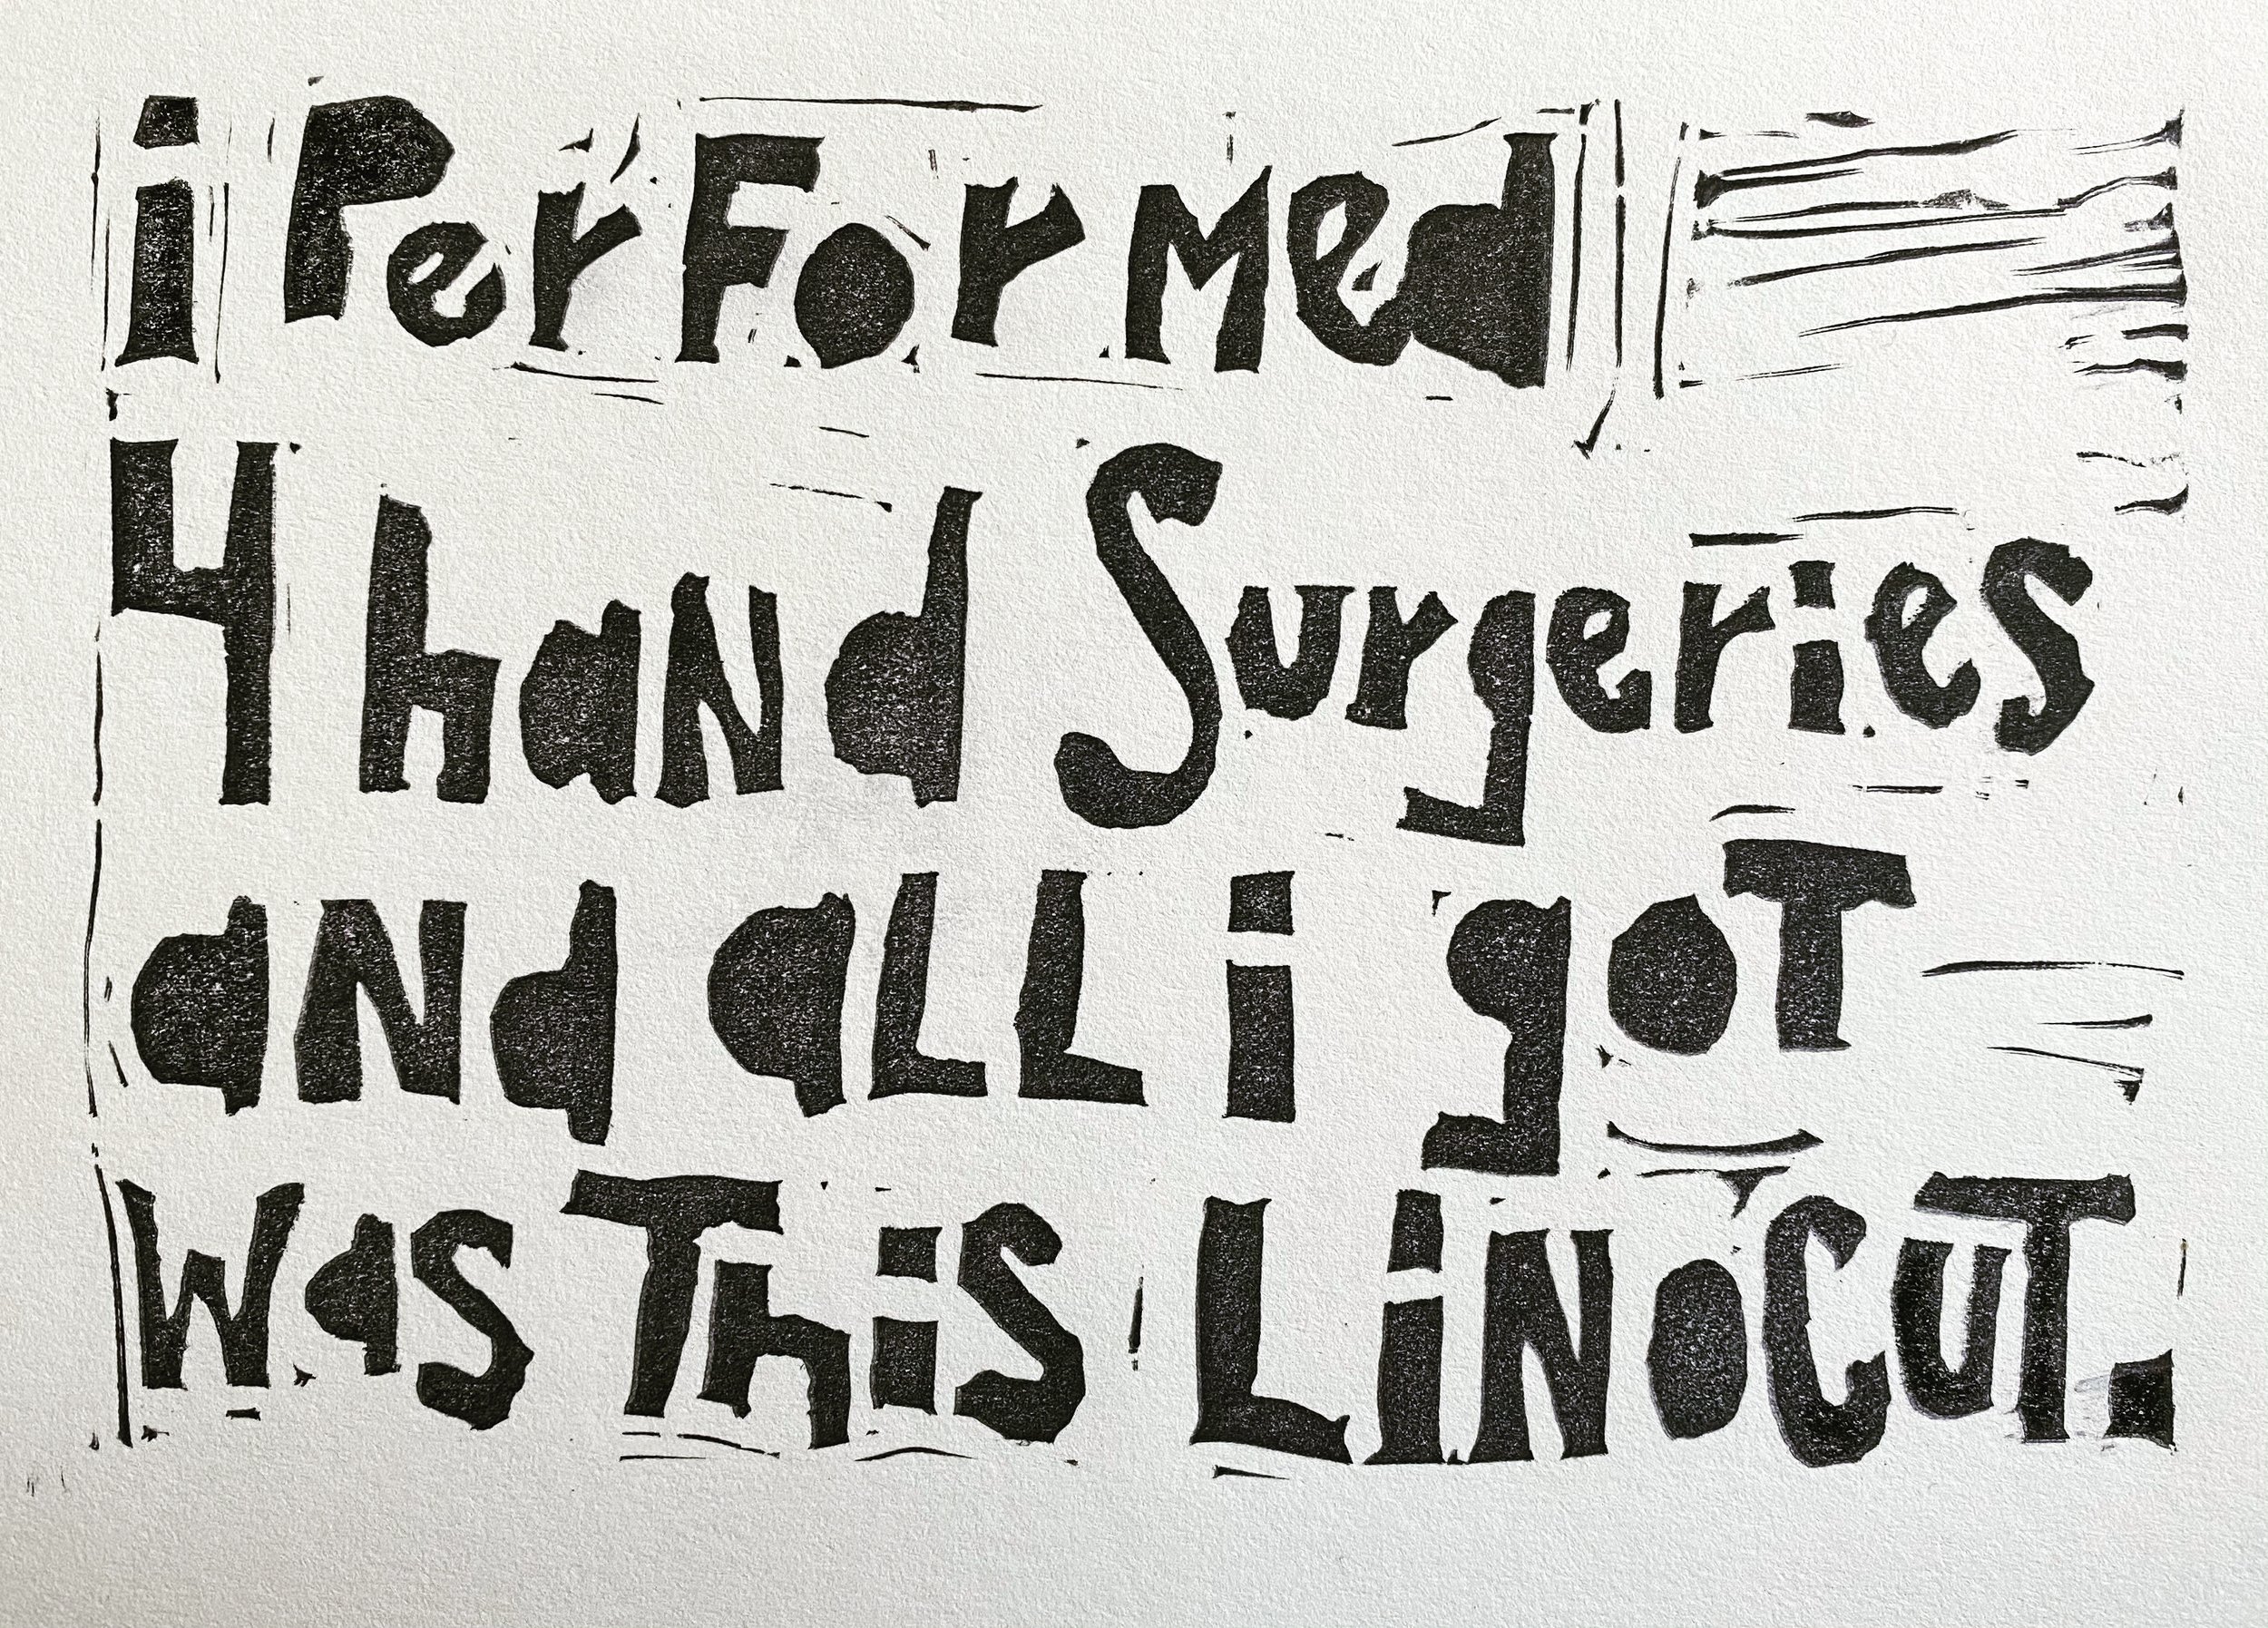 i PerFormed
4 haNd Surgeries
aNd aLL i goT
was This LiNoCuT.